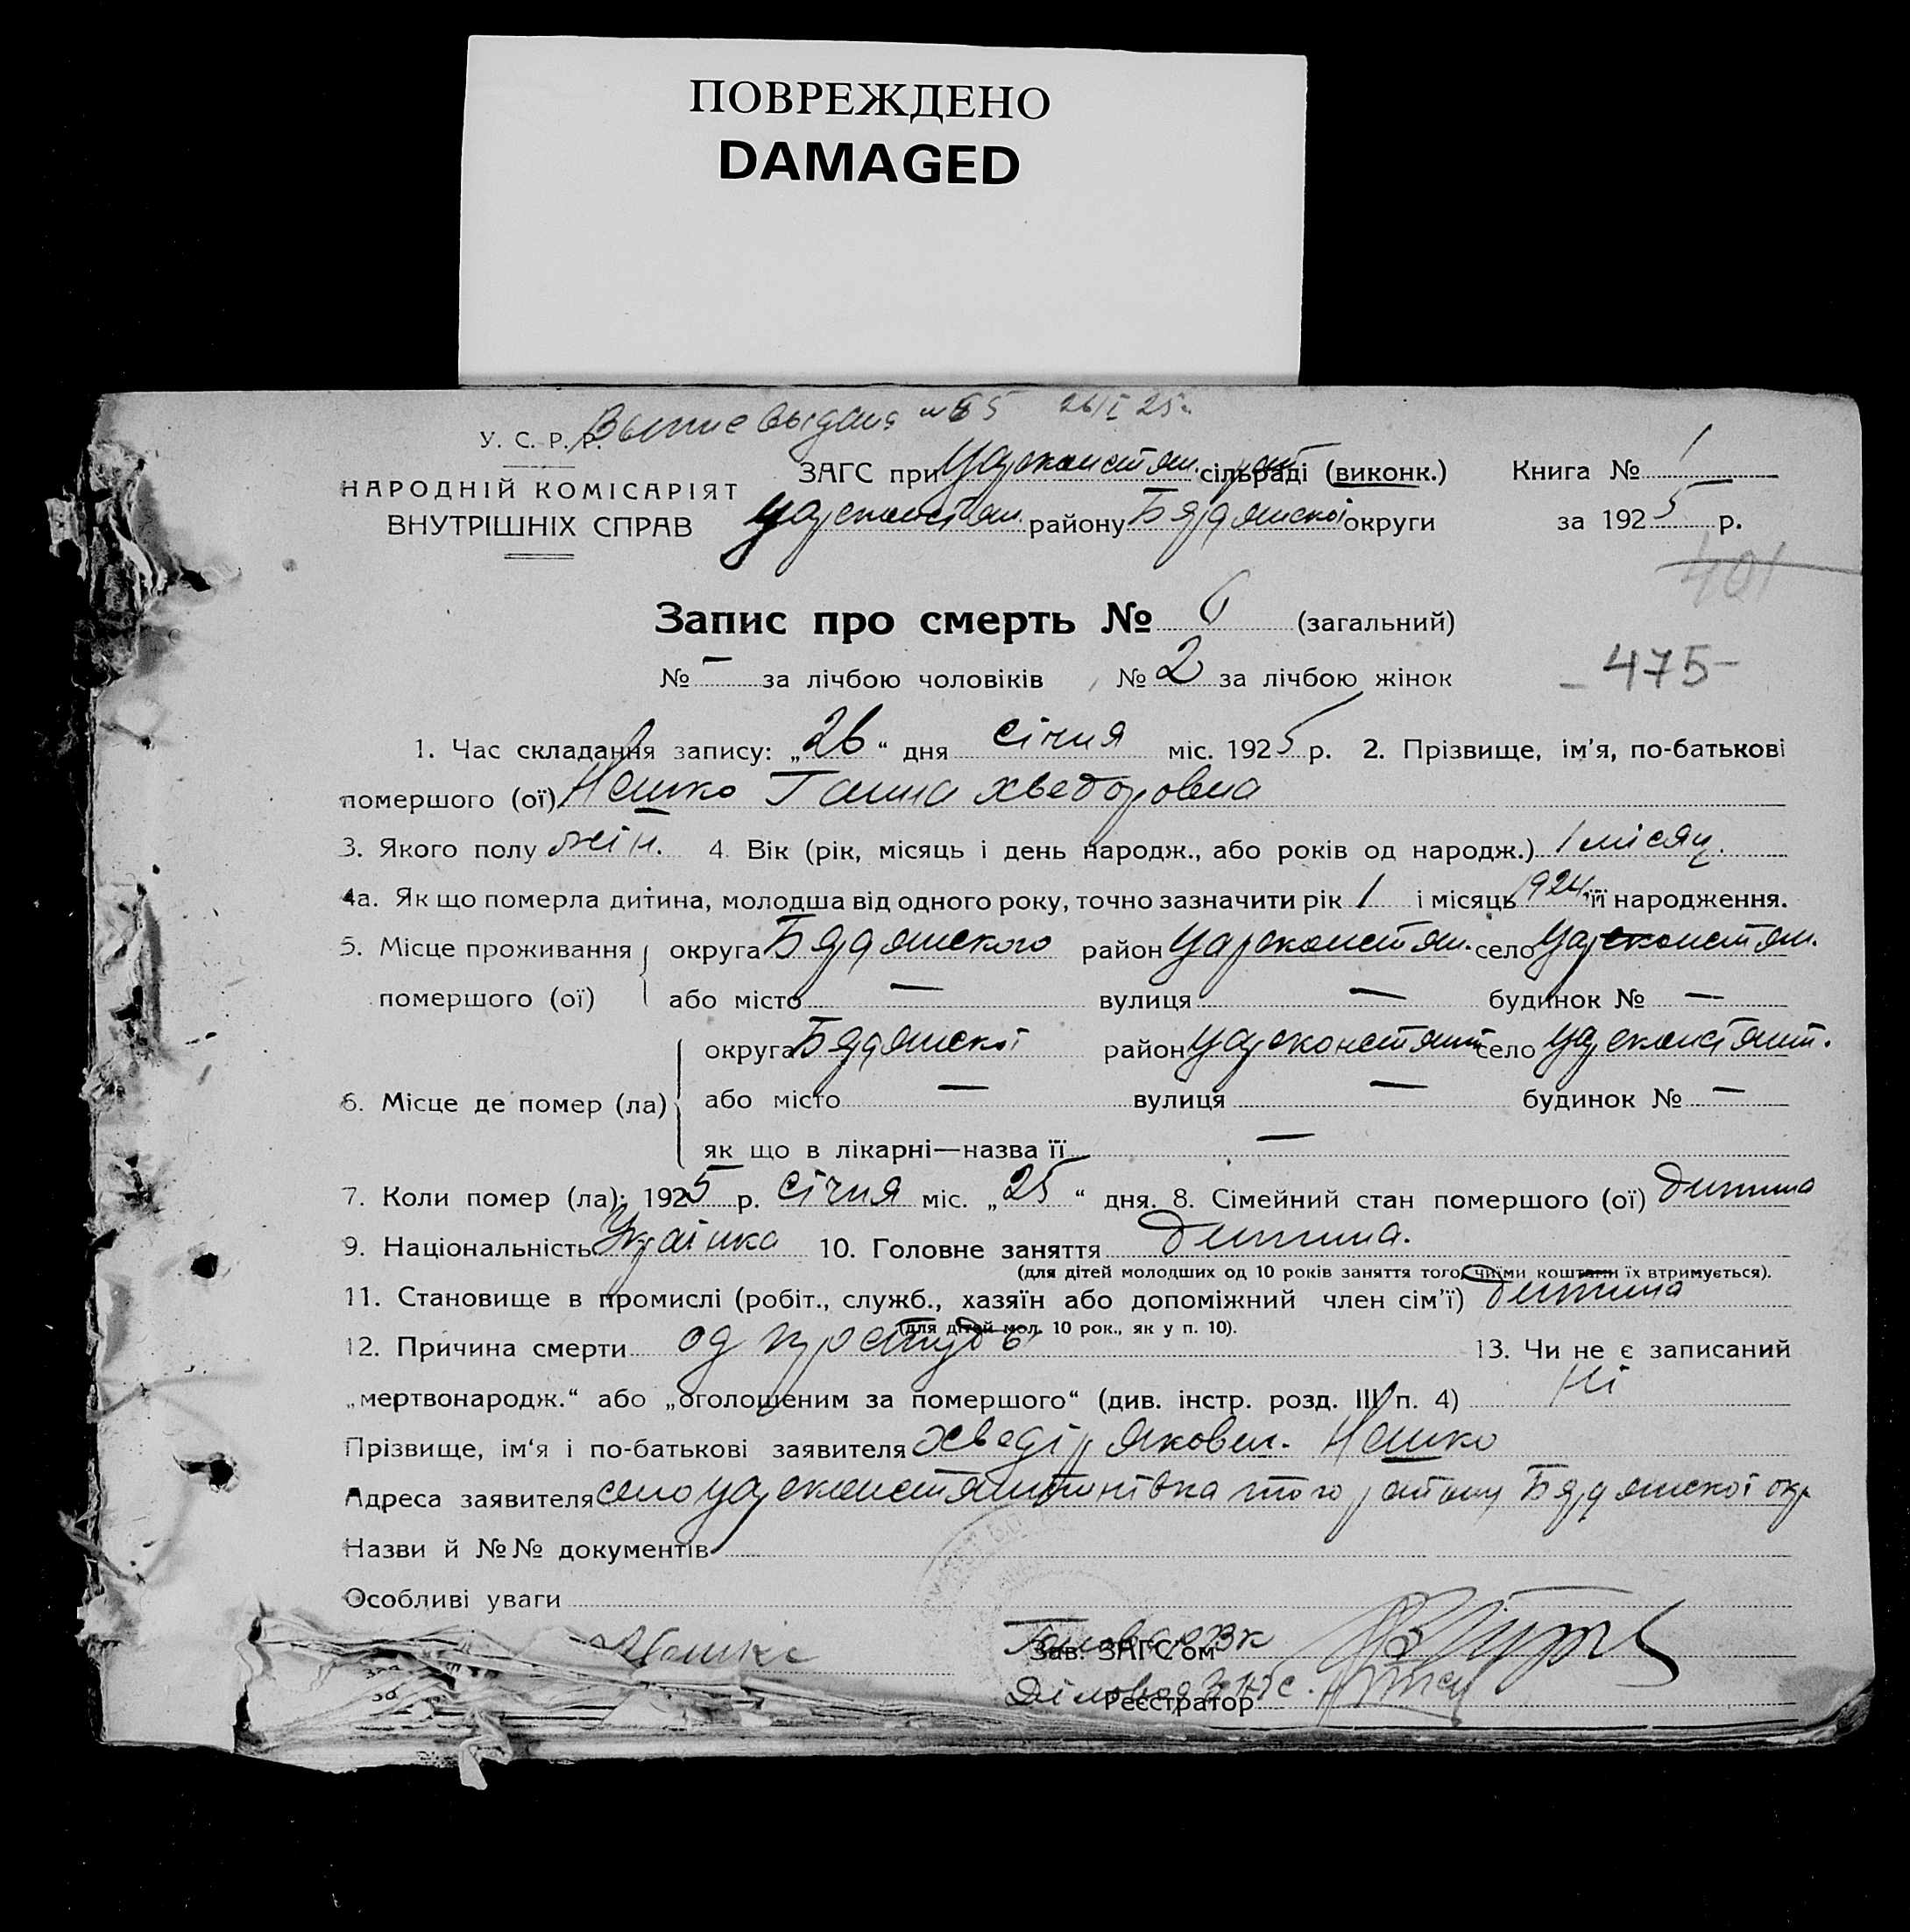 ПОВРЕЖДЕНО
DAMAGED
Выпис выдана №65 26/I 25г.
У. С. Р. Р.
НАРОДНІЙ КОМІСАРІЯТ
ВНУТРІШНІХ СПРАВ
ЗАГС при Царсконстян. сільраді (виконк.)
Царсконстян. району Бердянської округи
Книга № 1
за 1925 р.
401
Запис про смерть № 6 (загальний)
№ — за лічбою чоловіків № 2 за лічбою жінок
– 475 –
1. Час складання запису: „26“ дня січня міс. 1925 р. 2. Прізвище, ім’я, по-батькові
помершого (ої) Нешко Ганна Хведоровна
3. Якого полу жін. 4. Вік (рік, місяць і день народж., або років од народж.) 1 місяц.
4а. Як що померла дитина, молодша від одного року, точно зазначити рік 1 і місяць 1924 її народження.
5. Місце проживання округа Бердянского район Царсконстян. село Царсконстян.
помершого (ої) або місто — вулиця — будинок № —
округа Бердянскої район Царсконстянт село Царсконстянт.
6. Місце де помер (ла) або місто — вулиця — будинок № —
як що в лікарні—назва її —
7. Коли помер (ла): 1925 р. січня міс. „25“ дня. 8. Сімейний стан помершого (ої) дитина
9. Національність Українка 10. Головне заняття дитина.
(для дітей молодших од 10 років заняття того, чиїми коштами їх втримується).
11. Становище в промислі (робіт., служб., хазяїн або допоміжний член сім’ї) дитина
(для дітей мол. 10 рок., як у п. 10).
12. Причина смерти од простуды 13. Чи не є записаний
„мертвонародж.“ або „оголошеним за помершого“ (див. інстр. розд. III п. 4) Ні
Прізвище, ім‘я і по-батькові заявителя Хведір Яковл. Нешко
Адреса заявителя село Царсконстянтинівка того району Бердянської окр
Назви й №№ документів
Особливі уваги
Нешко
Голова РВК
Зав. ЗАГС’ом
Діловод ЗАГС.
Реєстратор